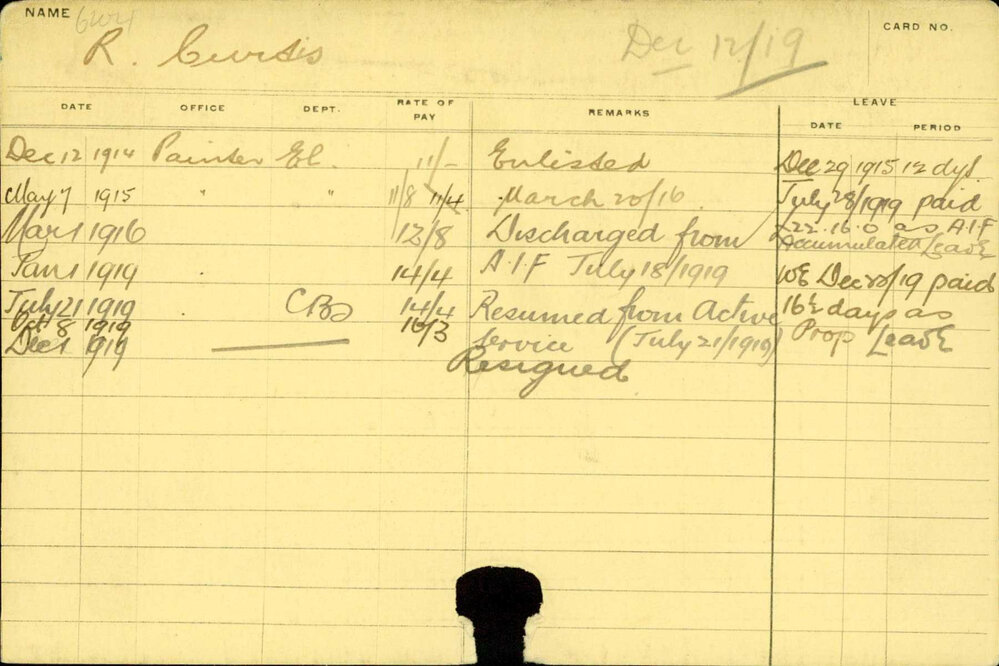 NAME
CARD NO.
R. Curtis
Dec 12/19
DATE OFFICE DEPT. RATE OF PAY REMARKS LEAVE
DATE PERIOD
Dec 12 1914 Painter El. 11/- Enlisted Dec 29 1915 12 dys.
May 7 1915 " " 11/8 11/4 March 20/16 July 28/1919 paid
Mar 1 1916 12/8 Discharged from £22.16.0 as A.I.F
Accumulated Leave
Jan 1 1919 14/4 A.I.F July 18/1919 WE Dec 20/19 paid
July 21 1919 CBS 14/4 Resumed from Active 16½ days as
Oct 8 1919 16/3
Dec 1 1919 Service (July 21/1919) Prop Leave
Resigned